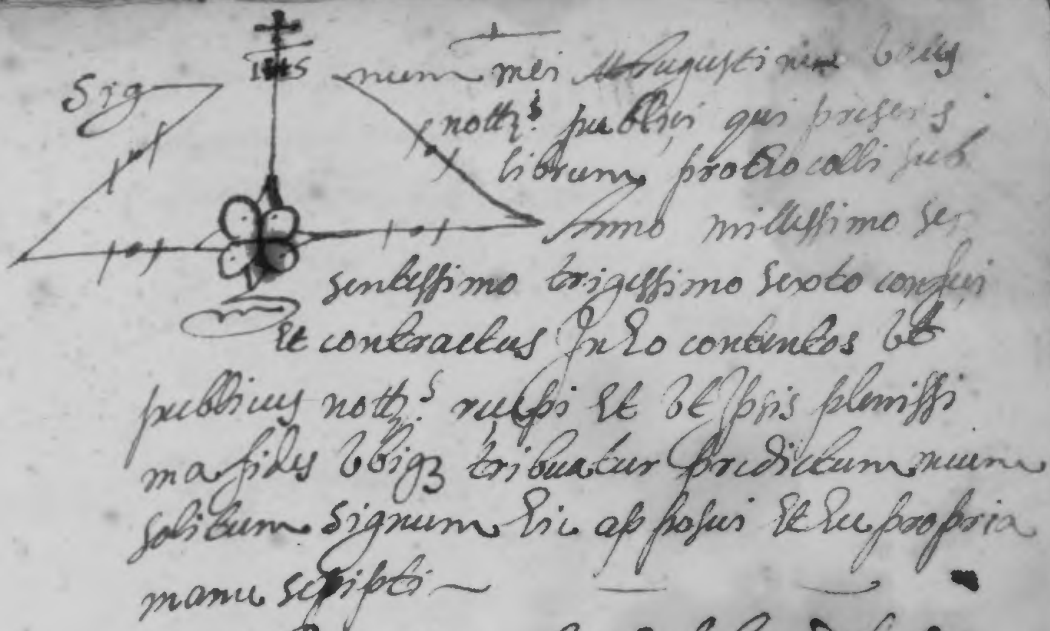 Sig IHS num mei Augustini
nott.s publici qui presens
librum prothocolli sub
Anno millessimo sex
sentessimo trigessimo sexto confeci
Et contractus In eo contentos Ut
publicus nott.s recepi Et Ut Ipsis plenissi
ma fides Ubiq3 tribuatur predictum meum
solitum signum hic apposui Et hec propria
manu scripsi